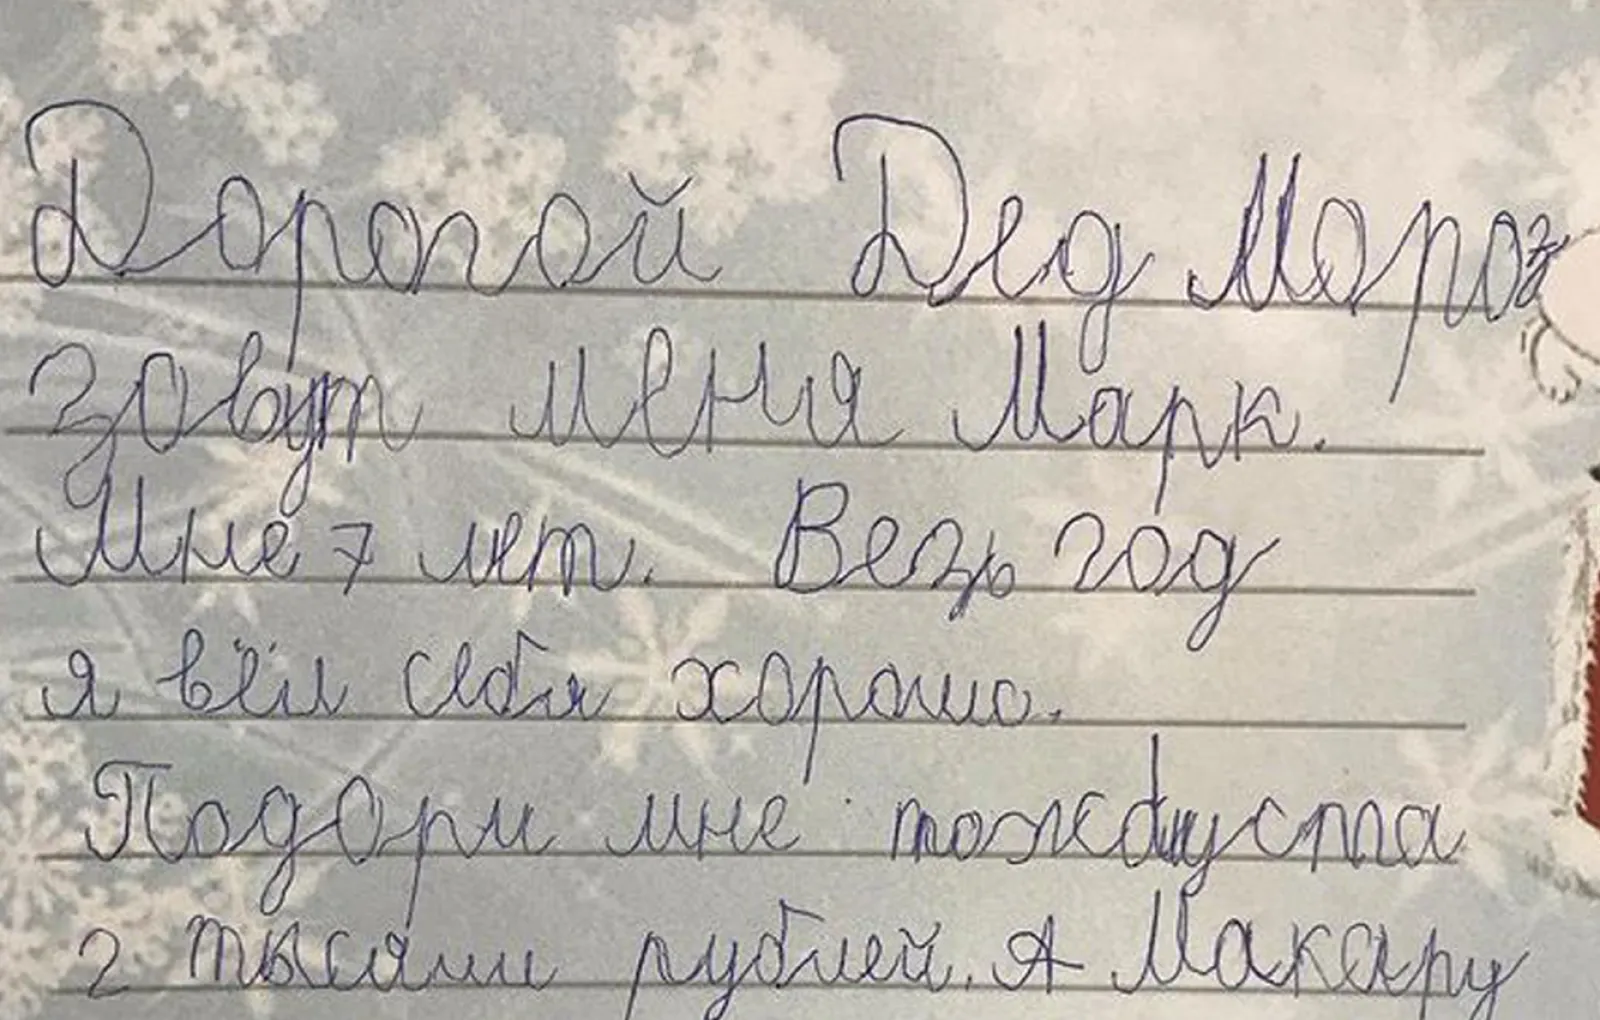 Дорогой Дед Мороз
зовут меня Марк.
Мне 7 лет. Везь год
я вёл себя хорошо.
Подори мне пожалуста
2 тысячи рублей. А Макару